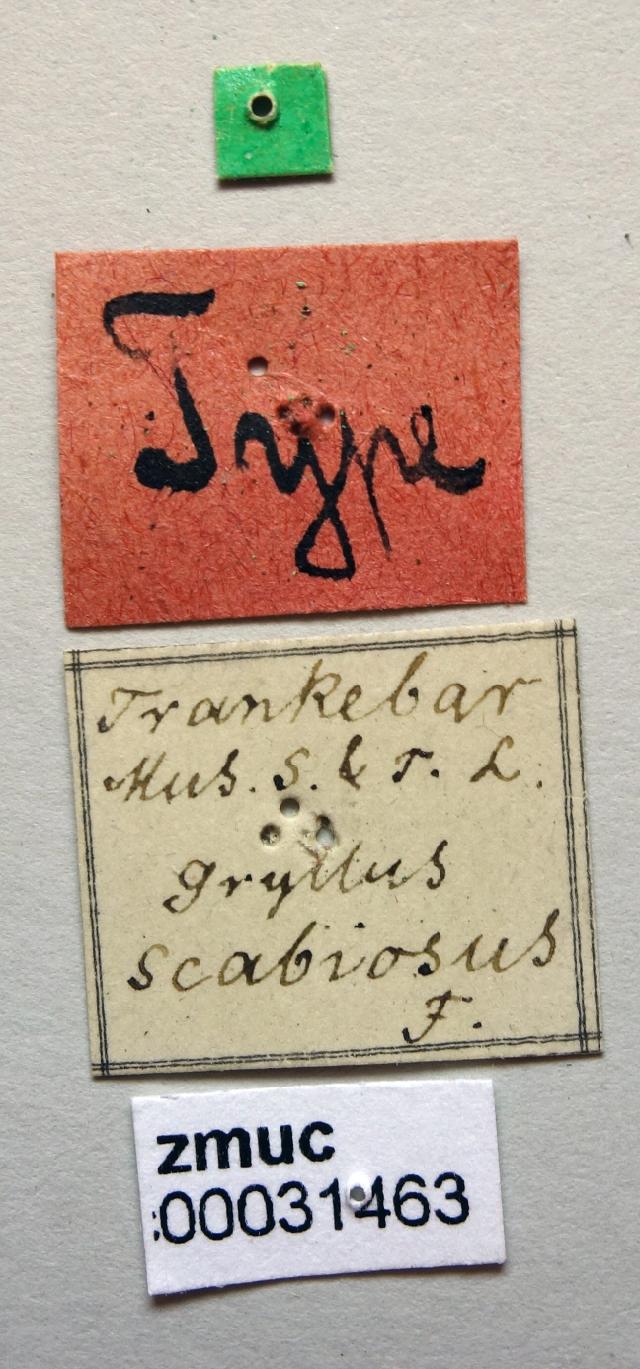 Type
Trankebar
Mus. S. & T. L.
Gryllus
scabiosus
F.
zmuc
:00031463